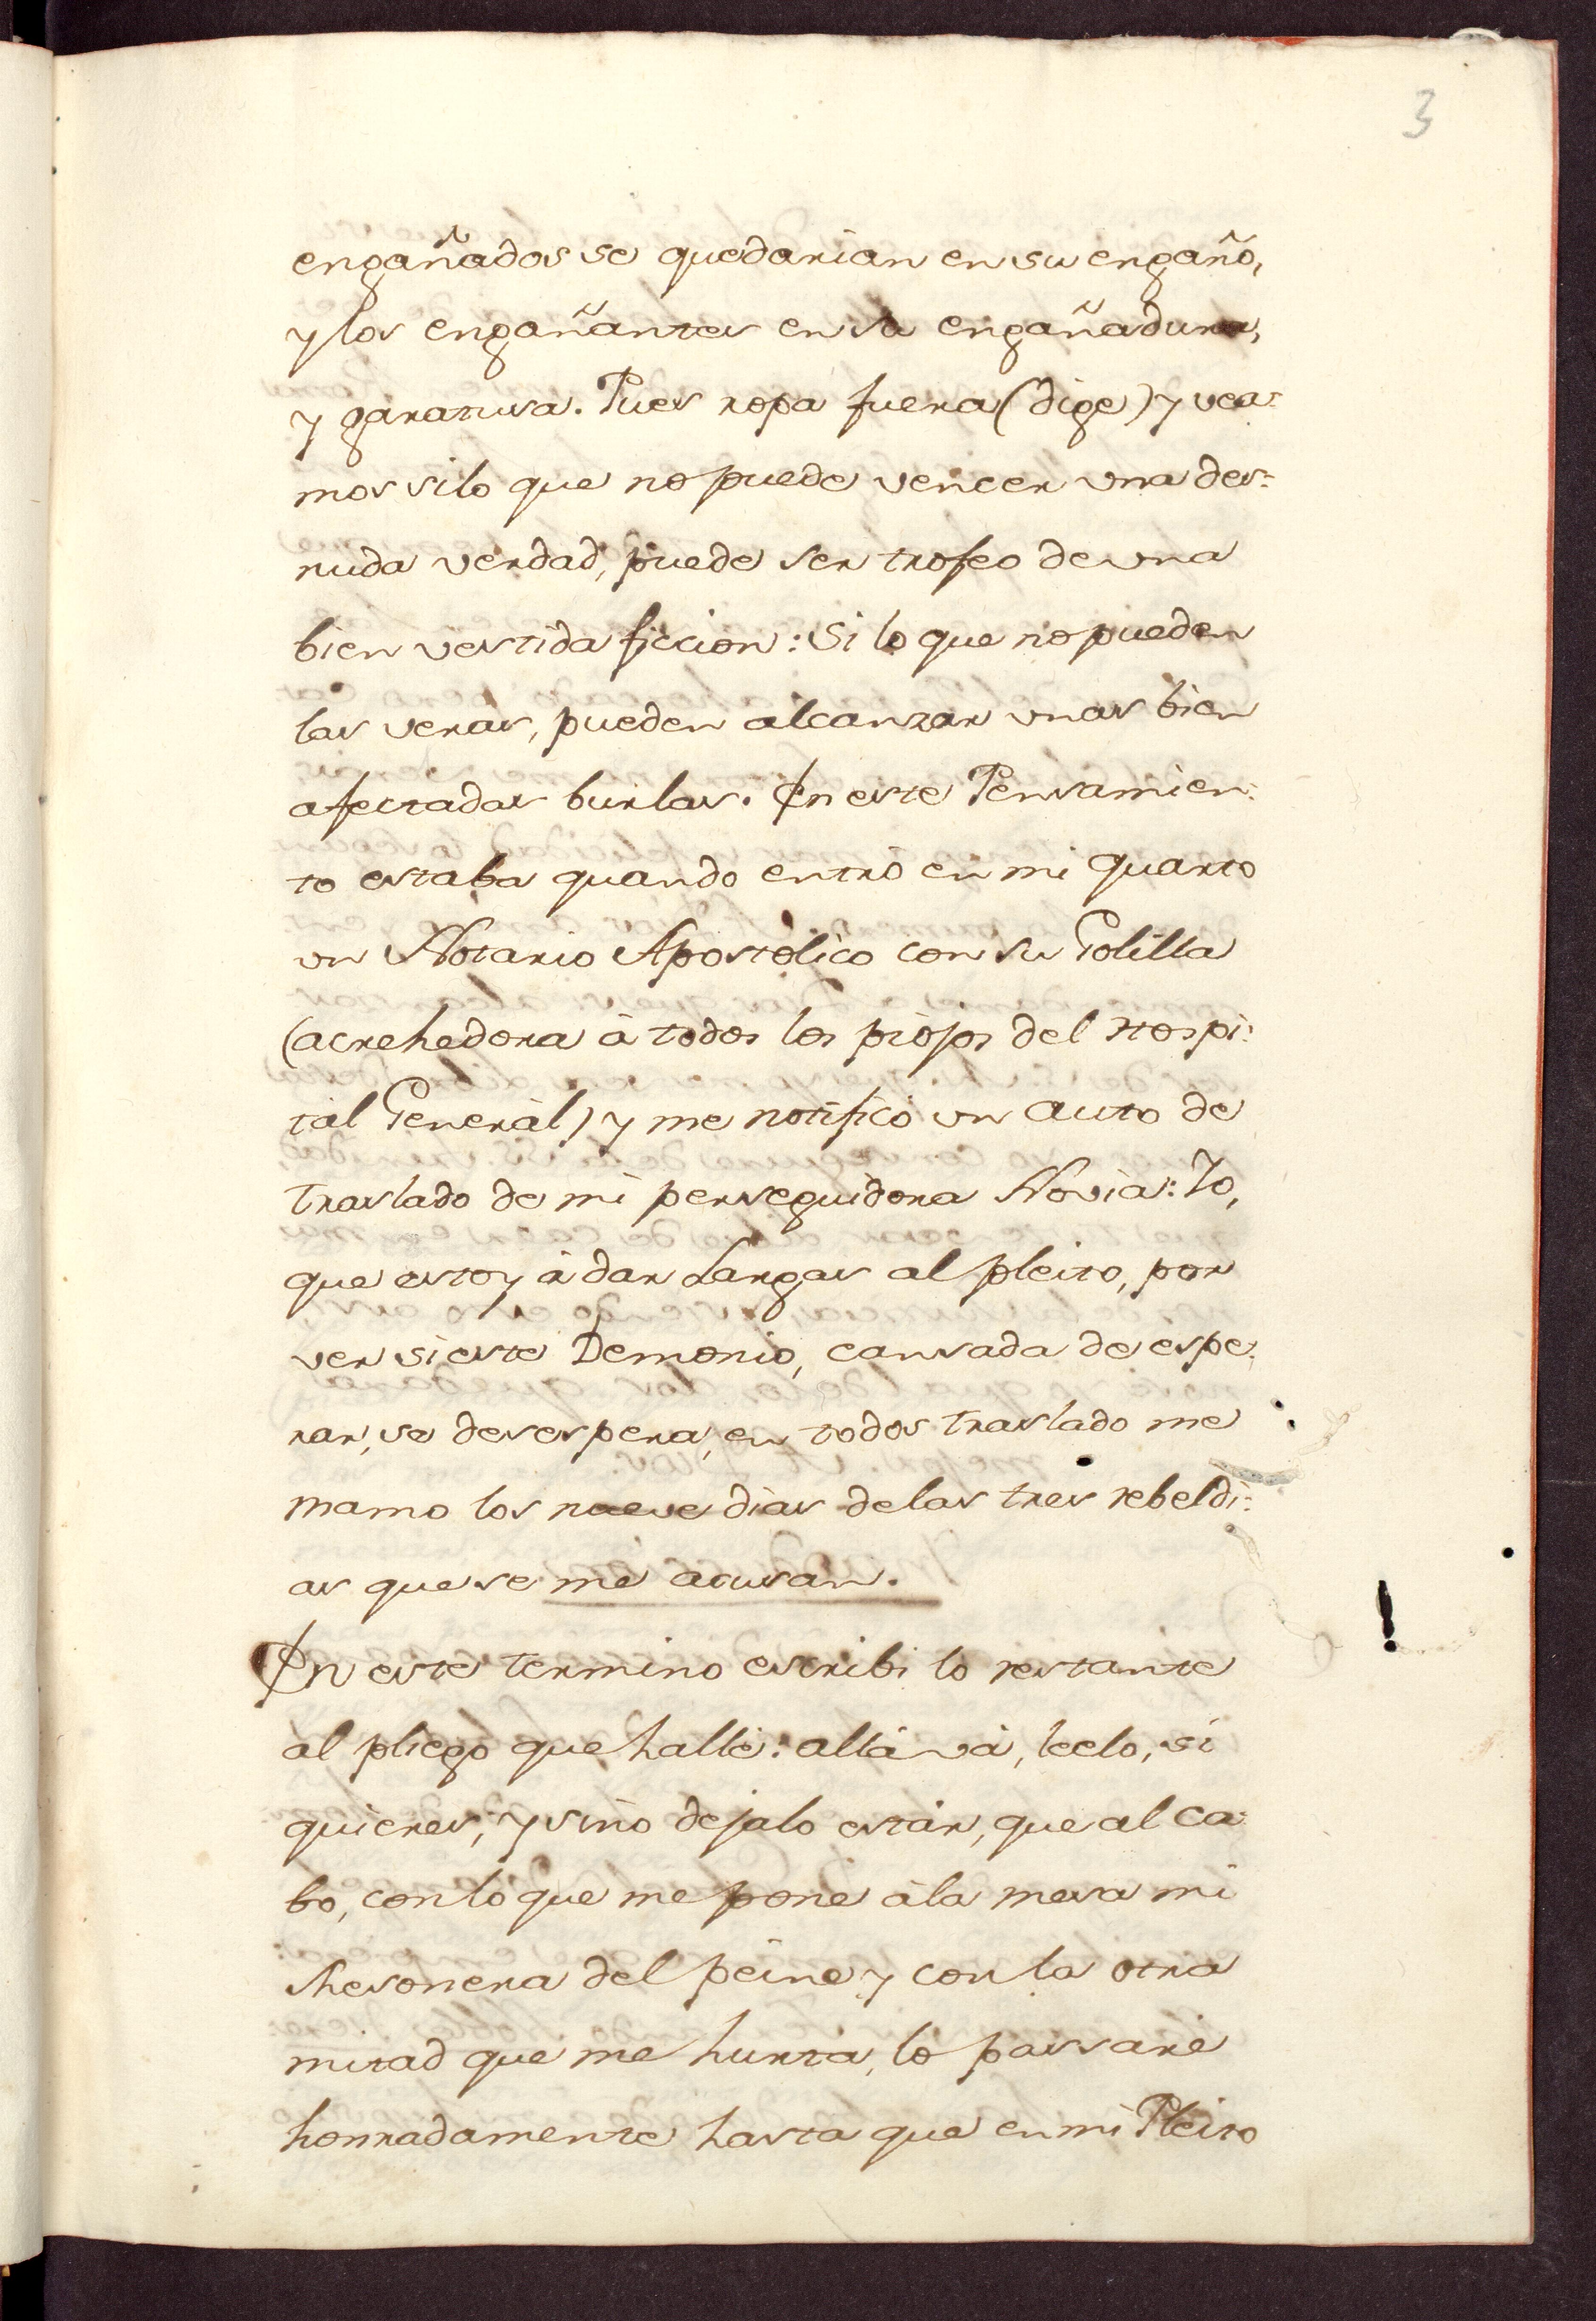 3
engañados se quedarian en su engaño,
y los engañantes en su engañadura,
y garatusa. Pues ropa fuera (dige) y vea:
mos si lo que no puede vencer una des:
nuda verdad, puede ser trofeo de una
bien vestida ficcion: Si lo que no pueden
las veras, pueden alcanzar unas bien
afectadas burlas. En este Pensamien:
to estaba quando entrò en mi quarto
un Notario Apostolico con su Golilla
(acrehedora à todos los piojos del Hospi:
tal Generàl) y me notificò un auto de
traslado de mi perseguidora Novia: Yo,
que estoy à dar Largas al pleito, por
ver si este Demonio, cansada de espe:
rar, se desespera, en todos traslado me
mamo los nueve dias de las tres rebeldi:
as que se me acusan.
En este termino escribi lo restante
al pliego que hallè: allà và, leelo, si
quieres, y sino dejalo estàr, que al ca:
bo, con lo que me pone à la mesa mi
Mesonera del peine, y con la otra
mitad que me hurta, lo passarè
honradamente hasta que en mi Pleito